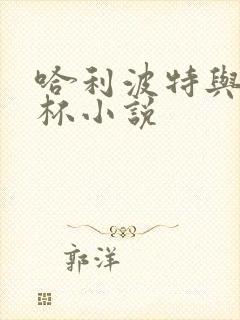 哈利波特與
杯小說
郭洋